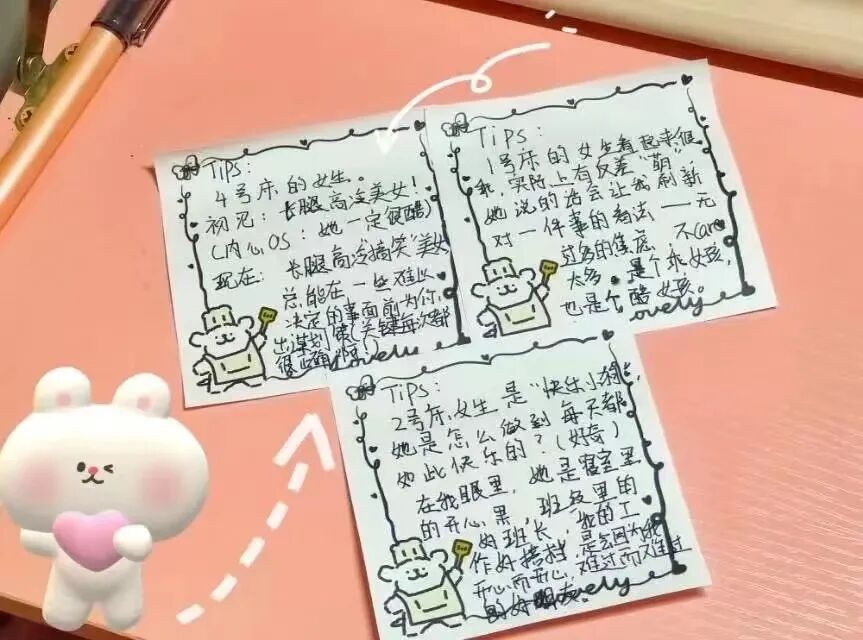 Tips:
4号床的女生。
初见:长腿高冷美女!
(内心OS:她一定很酷)
现在:长腿高冷"搞笑"美女
总能在一些难以
决定的事面前为你
出谋划策(关键每次都
很准确啊!)
Lovely
Tips:
1号床的女生看起来很
乖,实际上有反差"萌"
她说的话会让我刷新
对一件事的看法——无
过多的焦虑,不care
太多。是个乖女孩,
也是个酷女孩。
Lovely
Tips:
2号床女生是"快乐小狗",
她是怎么做到每天都
如此快乐的?(好奇)
在我眼里,她是寝室里
的开心果,班级里的
好班长,我的工
作好搭挡,是会因为我
开心而开心,难过而难过
的好朋友。
Lovely